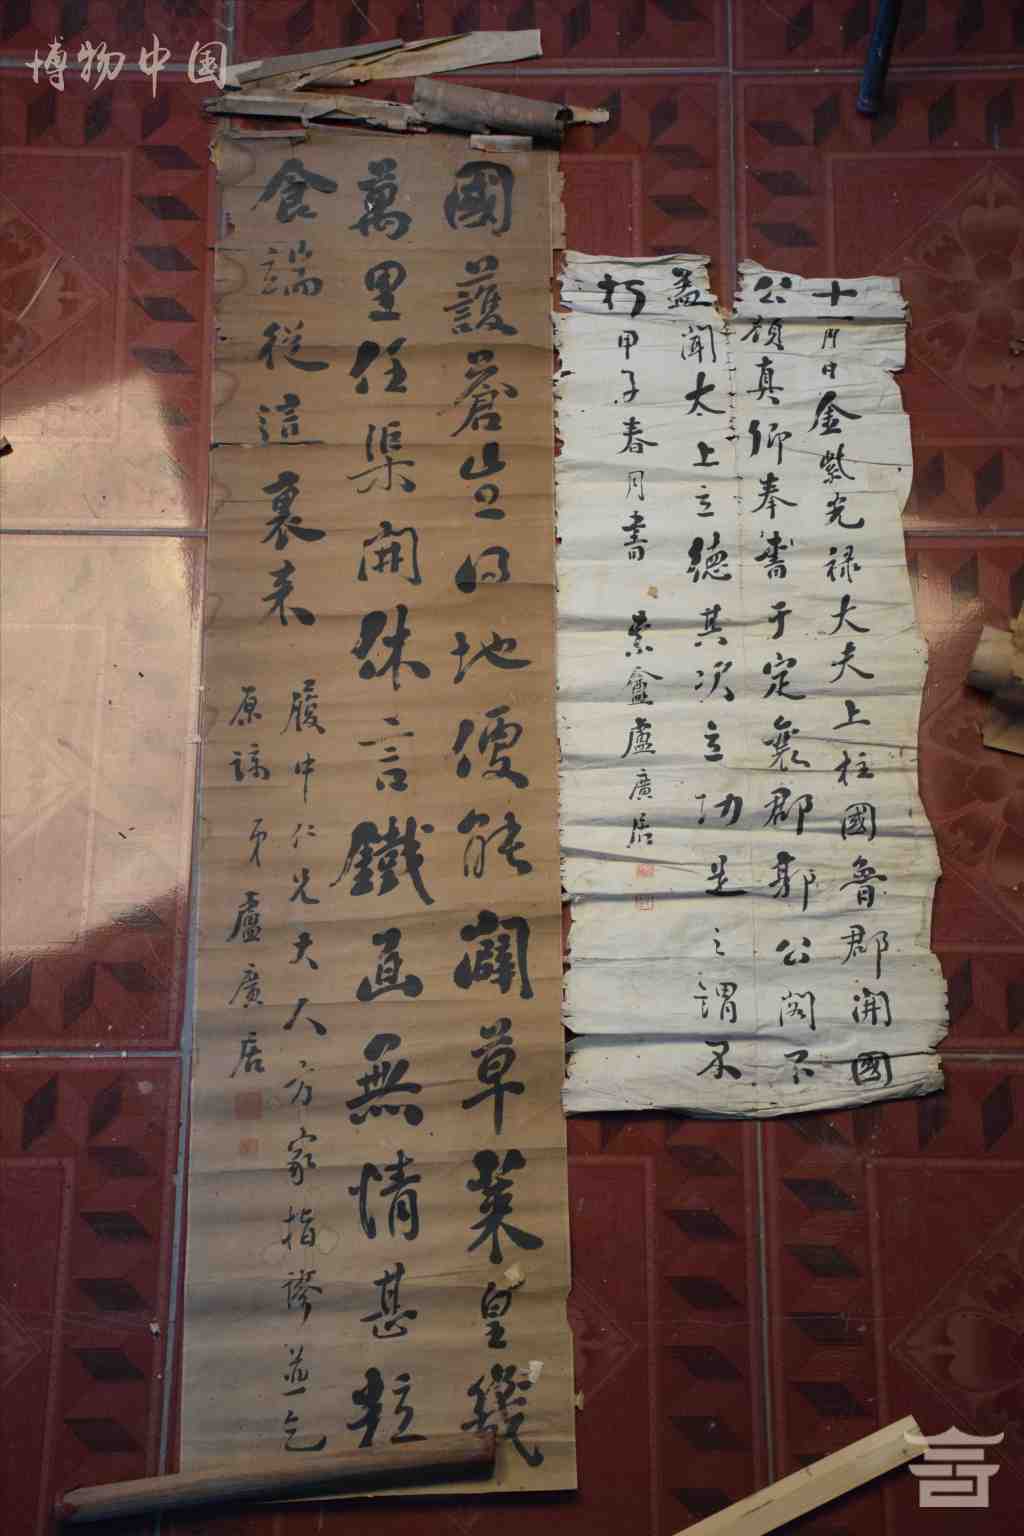 博物中国
十一月日金紫光禄大夫上柱國魯郡開國
公顏真卿奉書于定襄郡郭公閣下
蓋聞太上立德其次立功是之謂不
朽甲子春月書 盦盧廣居
國護蒼得地便能闢草萊皇畿
萬里任渠開休言鐵面無情甚粒
食端從這裏来
履中仁兄大人方家指謬並乞
原諒 弟盧廣居